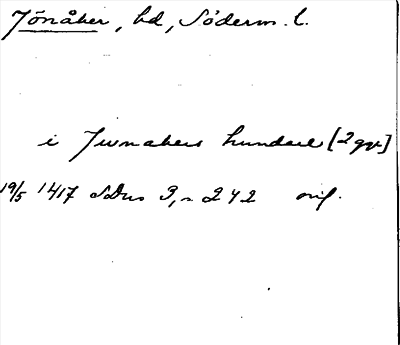 Jönåker, hd, Söderm. l.
i Jwnakers hundare [2 ggr]
19/5 1417 SDns 3, s 242 orig.